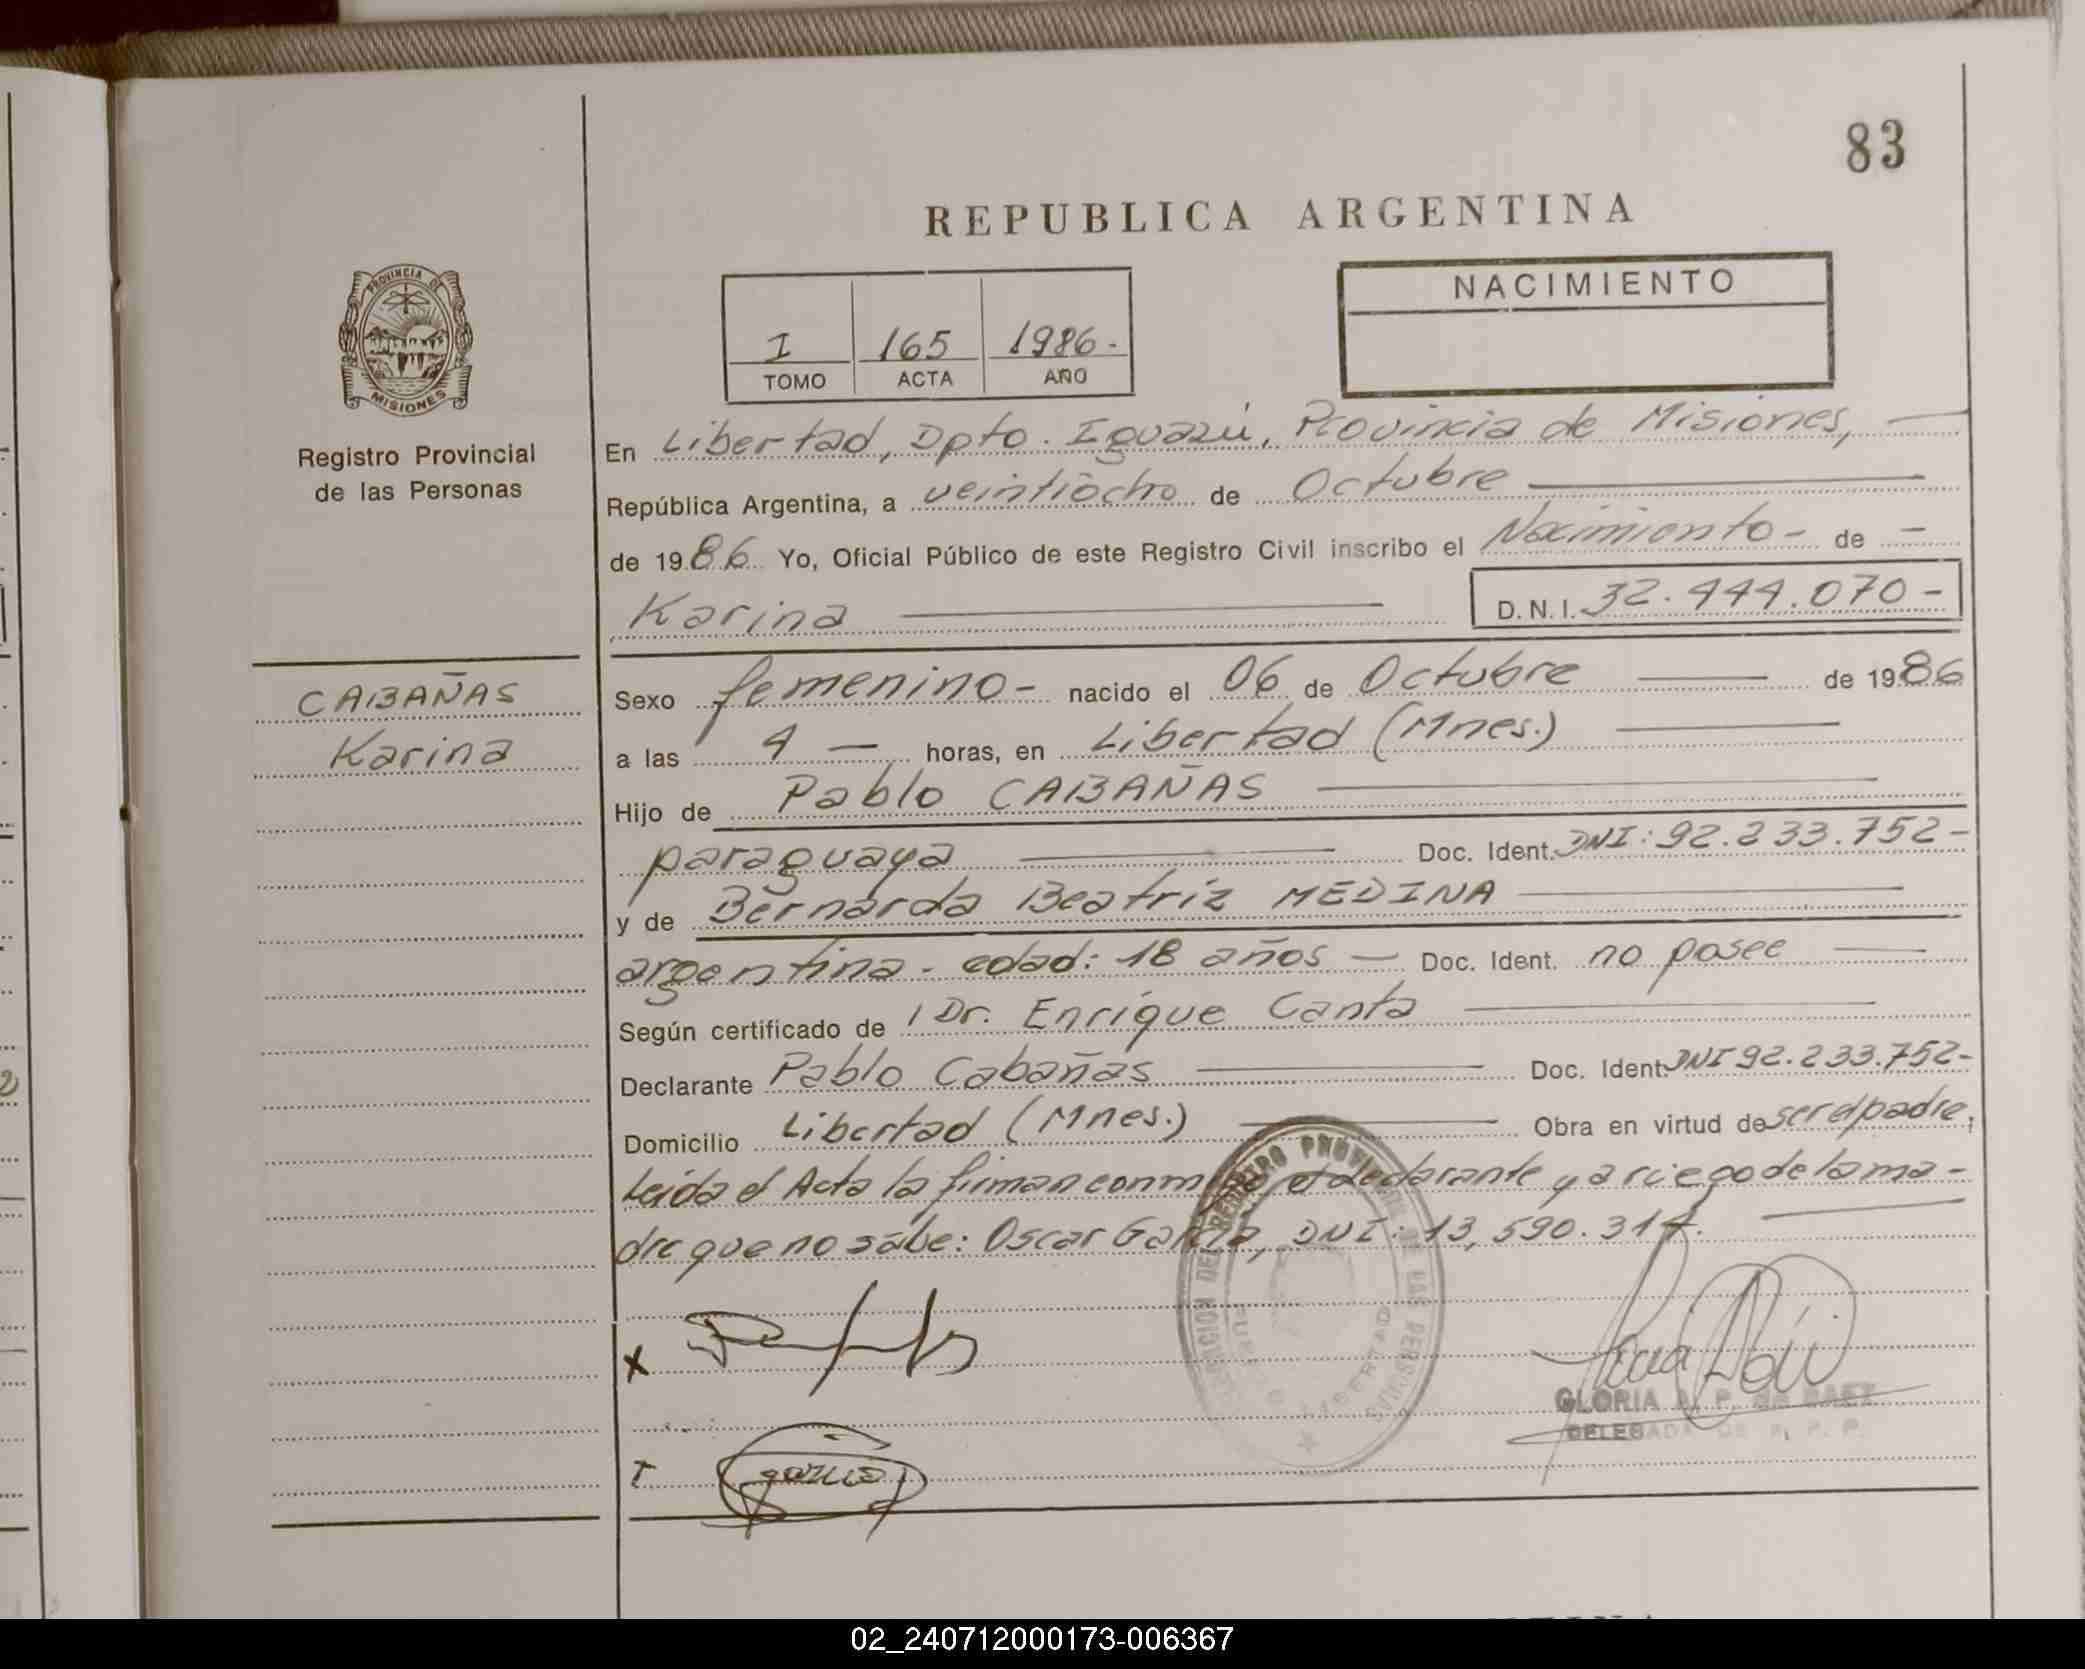 83
REPUBLICA ARGENTINA
PROVINCIA DE
MISIONES
Registro Provincial
de las Personas
NACIMIENTO
I 165 1986.-
TOMO ACTA AÑO
En Libertad, Dpto. Iguazú, Provincia de Misiones, —
República Argentina, a veintiocho de Octubre —
de 1986 Yo, Oficial Público de este Registro Civil inscribo el Nacimiento - de —
Karina — D.N.I. 32.444.070 -
CABAÑAS
Karina
Sexo femenino - nacido el 06 de Octubre — de 1986
a las 4 — horas, en Libertad (Mnes.) —
Hijo de Pablo CABAÑAS —
paraguaya — Doc. Ident. DNI: 92.233.752-
y de Bernarda Beatriz MEDINA —
argentina - edad: 18 años — Doc. Ident. no posee —
Según certificado de Dr. Enrique Canta —
Declarante Pablo Cabañas — Doc. Ident. DNI 92.233.752-
Domicilio Libertad (Mnes.) — Obra en virtud de ser el padre;
Leida el Acta la firman conmigo el declarante y a riego de la ma-
dre que no sabe: Oscar Garcia, DNI: 13,590.314. —
X
T. garcia
REGISTRO PROVINCIAL DE LAS PERSONAS
LIBERTAD
GLORIA N. P. DE BAEZ
DELEGADA DE R. P. P.
02_240712000173-006367